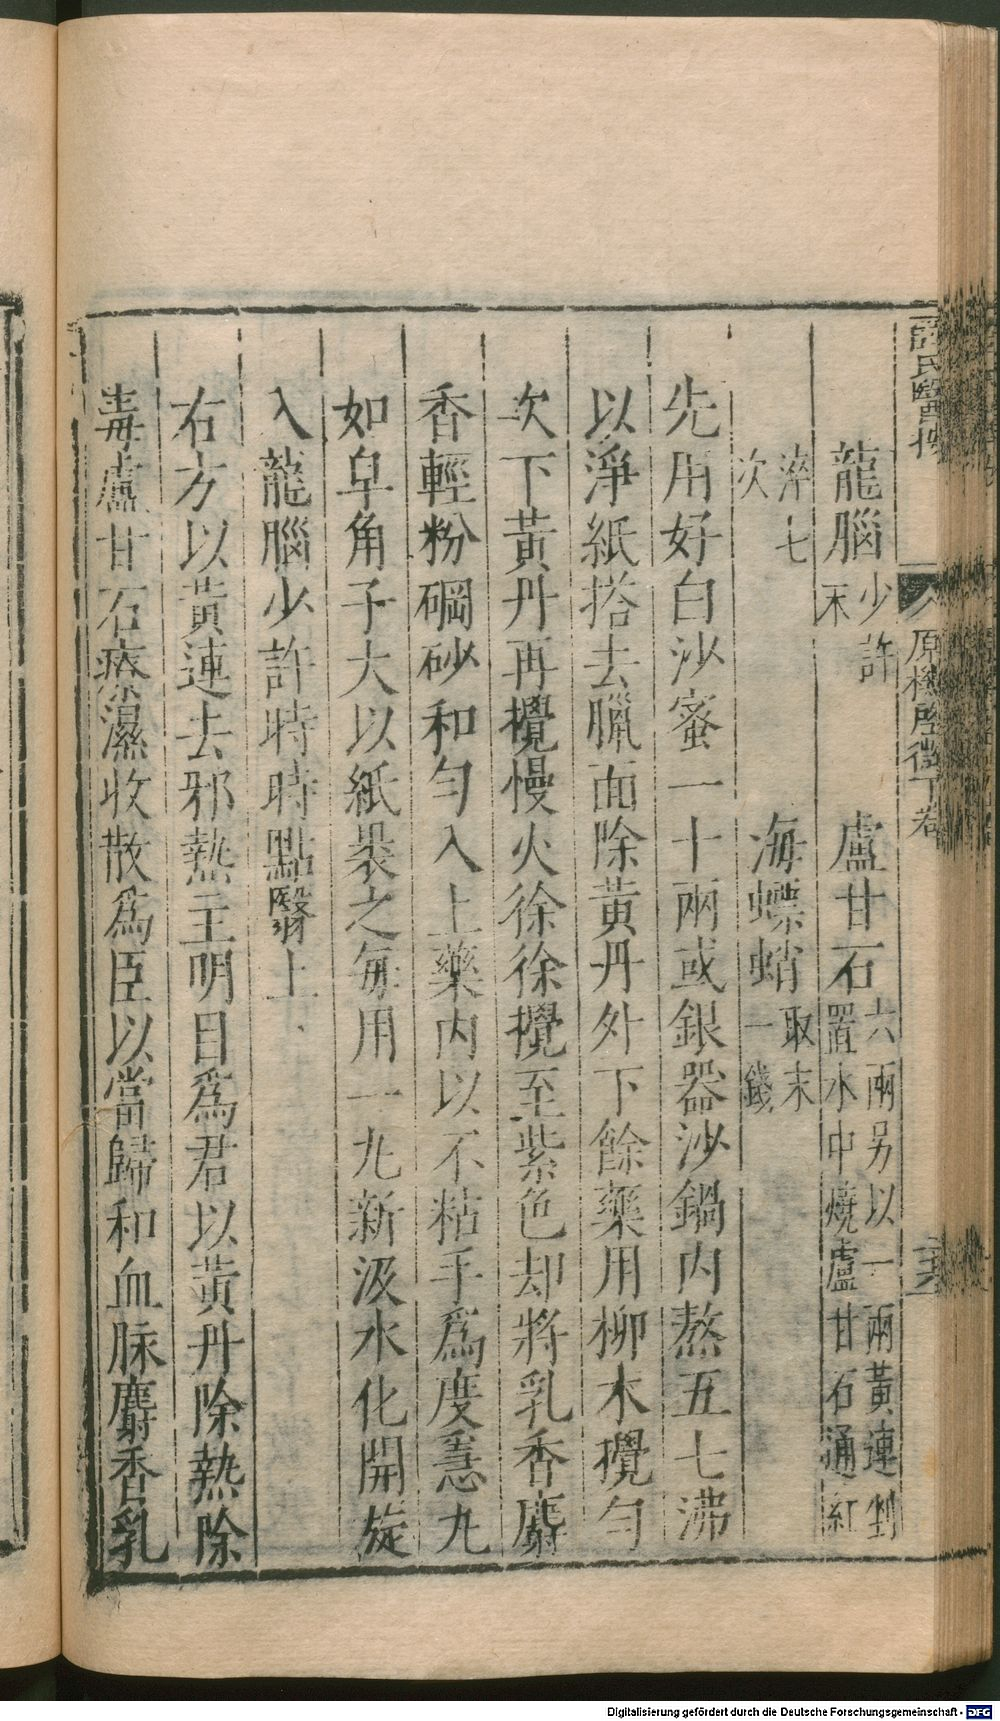 薛氏醫按 原機啓微下卷 二六
龍腦少許末 盧甘石六兩另以一兩黃連剉置水中燒盧甘石通紅
淬七次 海螵蛸取末一錢
先用好白沙蜜一十兩或銀器沙鍋內熬五七沸
以淨紙搭去臘面除黃丹外下餘藥用柳木攪勻
次下黃丹再攪慢火徐徐攪至紫色却將乳香麝
香輕粉碙砂和勻入上藥內以不粘手爲度急丸
如皁角子大以紙裹之每用一丸新汲水化開旋
入龍腦少許時時點瞖上
右方以黃連去邪熱主明目爲君以黃丹除熱除
毒盧甘石療濕收散爲臣以當歸和血脉麝香乳
Digitalisierung gefördert durch die Deutsche Forschungsgemeinschaft - DFG